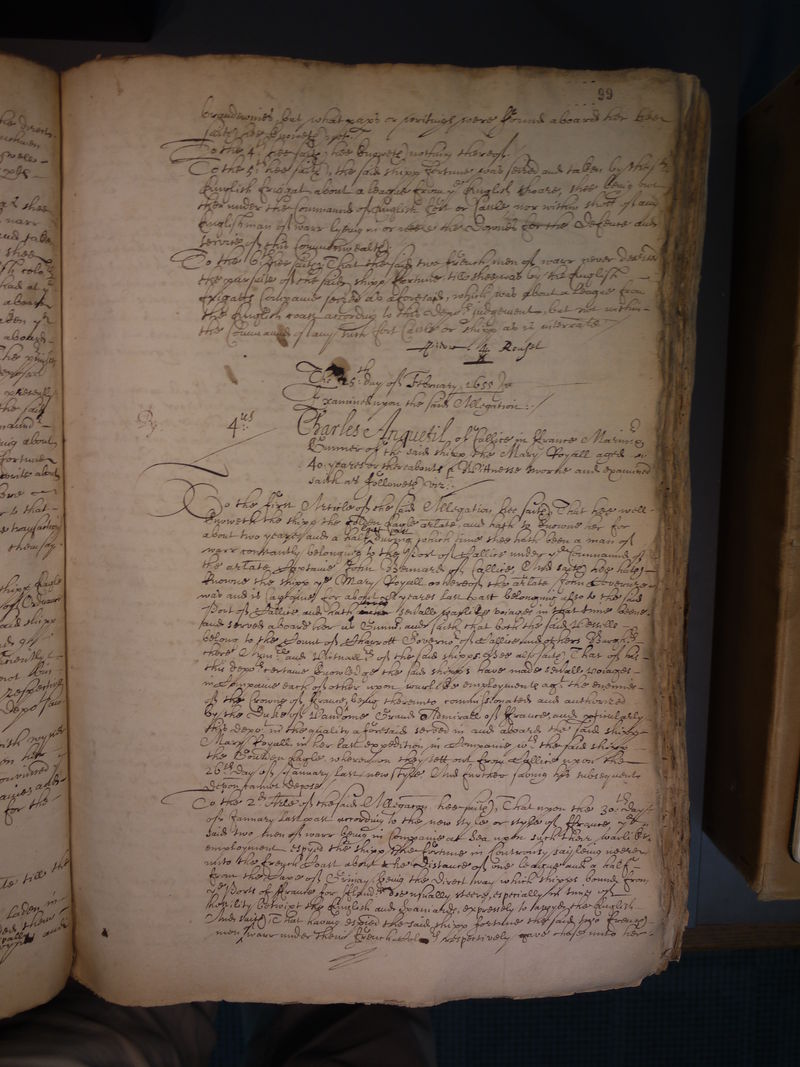 99
brandwines, but what papers or writings were found aboard her hee
saith hee knoweth not.
To the 4th hee saith hee knoweth nothing thereof
To the 5th hee saith, the said shipp Fortune was seized and taken by the sd
English friggat about a league from ye English shoare, shee being
then under the Command of English fort or Castle nor within shott of any
Englishman of warr lyeing in or neere the Downes for the defence and
service of this Commonwealth
To the 6th hee saith That the said two french men of warr never deserted
the pursuite of the said shipp Fortune till shee was by the English
frigats Companie seized as aforesaid, which was about a league from
the English coast according to this depts judgement, but not within
the Command of any such fort Castle or shipp as is interrate
The 25th day of February 1655
Examined upon the said Allegation
Dy.
4us
Charles Anquetil of Callice in France Mariner
Gunner of the said shipp the Mary Royall aged
40 yeares or thereabouts a Witnesse sworne and examined
saith as followeth vizt
To the first Article of the said Allegation hee saith That hee well
knoweth the shipp the Golden Eagle arlate and hath so knowne her for
about two yeares and a halfe last past during which time shee hath been a man of
warr constantly belonging to the Port of Callice under ye Command of
the arlate Captaine John Bennard of Callice, And saith hee hath
knowne the shipp ye Mary Royall whereof the arlate John
was and is Captaine for about yeares last past belonging also to the said
Port of Callice and hath severall voiages in that time beene
and served aboard her as Gunner, and saith that both the said Vessells
belong to the Count of Charrott Governor of Callice and others Burghers
there and Victuallers of the said shipps. Hee alsoe saith That of
this depts certaine knowledge the said shipps have made severall voiages
in Companie each of other upon warlike employments agt the enemies
of the Crowne of France, being thereunto commissionated and authorized
by the Duke of Vandome Grand Admirall of France, and particularly
this dept in the quality aforesaid served in and aboard the said shipp
Mary Royall in her last expedition in Companie wth the said shipp
the Goulden Eagle, whereon they sett out from Callice upon the
26th day of January last new style And further saving his subsequent
deposition hee cannot depose
To the 2d Arle of the said Allegacon hee saith, That upon the 30th day
of January last past according to the new style or style of France, ye
said two men of warr being in Companie at Sea upon such their warlike
employment espied the shipp the Fortune in controversy sayleing neerer
unto the french Coast about the distance of one league and a halfe
from the Cape of being the direct way which shipps bound from
ye Ports of France for Flanders usually steere, especially in time of
hostility betwixt the English and Spaniards, expressly to the English
And saith That having espied the said shipp Fortune the said two french
men of warr under their french Colours respectively gave chase unto her